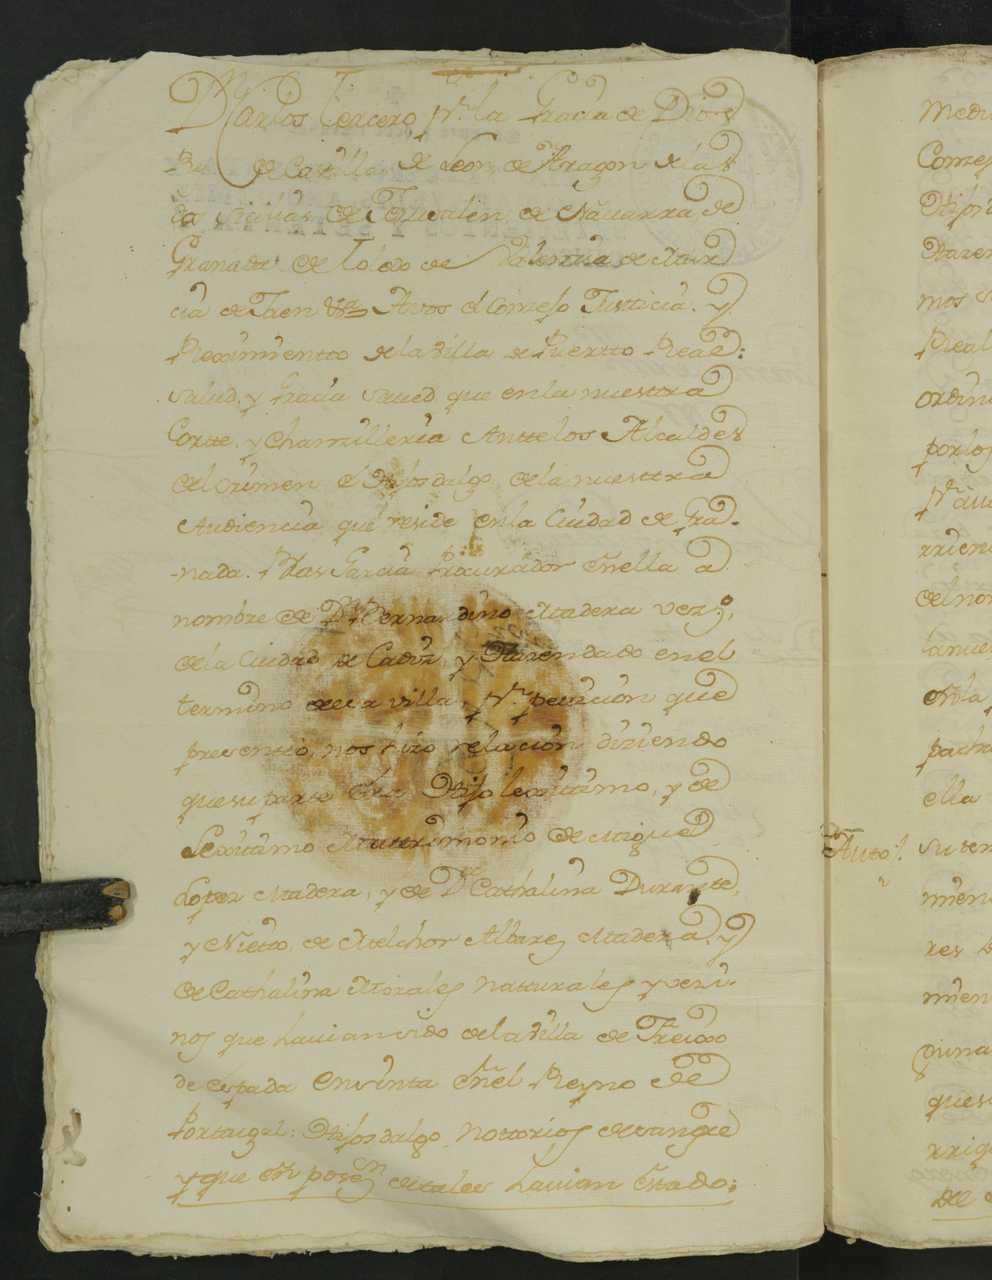 Dn Carlos Tercero pr. la Gracia de Dios
Rey de Castilla, de Leon, de Aragon de las
dos Sicilias, de Jerusalen, de Navarra de
Granada de Toledo de Valencia de Mur
cia de Jaen &a Avos el Consejo Justicia. y
Reximiento de la Villa de Puertto Real:
salud, y Gracia saued que en la nuesttra
Cortte, y Chanzilleria Anttelos Alcaldes
del Crimen e Hijosdalgo, de la nuesttra
Audiencia que reside en la Ciudad de Gra-
nada. Blas Garcia Procurador en ella a
nombre de Dn Bernardino Madera vezo,
de la Ciudad de Cadiz, y Hazendado en el
termino de esa villa, pr. peticion que
presentó, nos hizo relacion diziendo
que su parte Era Hijo lexitimo, y de
Lexitimo Matrimonio de Miguel
Lopez Madera, y de Da Cathalina Durante,
y Nieto, de Melchor Albarez Madera, y
de Cathalina Morales Naturales y vezi-
nos que hauian sido de la Villa de Freixo
de Espada en sinta en el Reyno de
Portugal: Hijosdalgo, nottorios de sangre
y que en posen de tales hauian Estado:
Medi
Consej
Hijos
Hazen
mos
Real
ordin
por los
pr. au
rrien
del no
la nue
en la
padr
ella
Auto.
su ter
mien
res
mien
que su
rrig
del